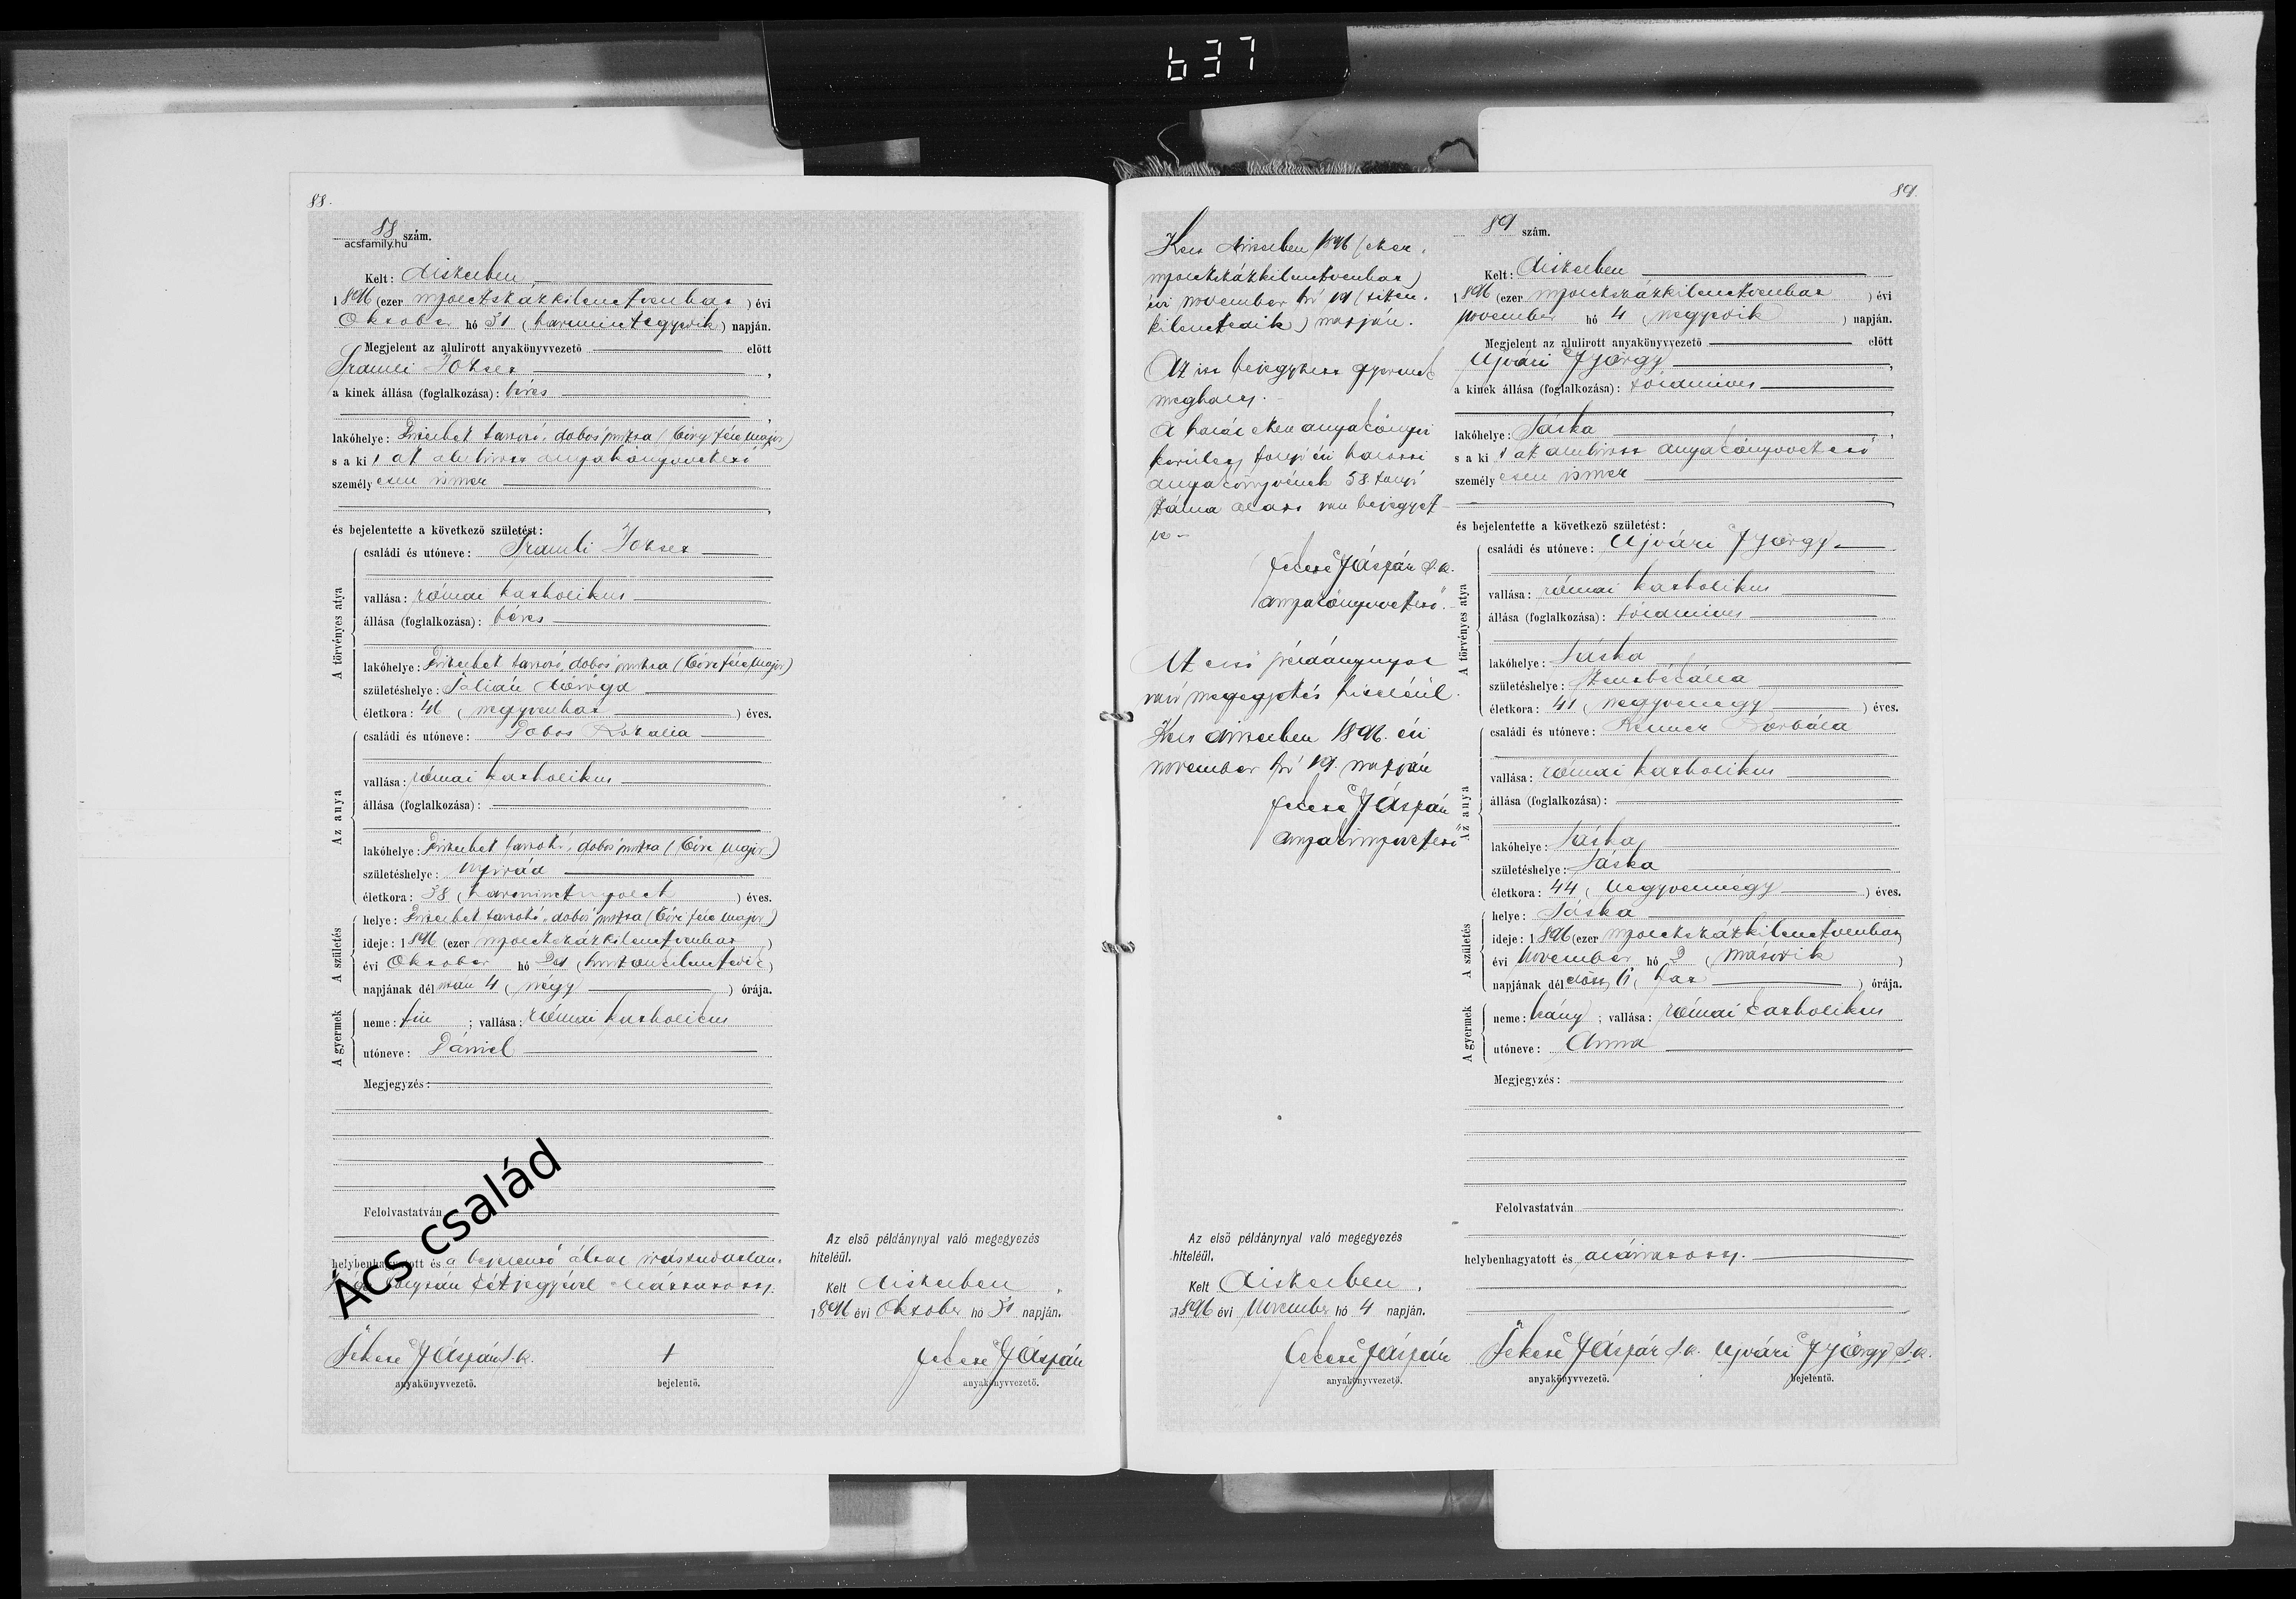 637
88.
88 szám.
acsfamily.hu
Kelt: Diszelben
1896 (ezer nyolczszázkilenczvenhat) évi
Október hó 31 (harminczegyedik) napján.
Megjelent az alulirott anyakönyvvezető előtt
József
a kinek állása (foglalkozása): béres
lakóhelye: dobos puszta
s a ki t az alulirott anyakönyvvezető
személyesen ismer
és bejelentette a következő születést:
A törvényes atya
családi és utóneve: József
vallása: római katholikus
állása (foglalkozása): béres
lakóhelye: dobos puszta
születéshelye:
életkora: 46 (negyvenhat) éves.
Az anya
családi és utóneve: Dobos Rozália
vallása: római katholikus
állása (foglalkozása):
lakóhelye: dobos puszta
születéshelye: Nyirád
életkora: 38 (harmincznyolcz) éves.
A születés
helye: dobos puszta
ideje: 1896 (ezer nyolczszázkilenczvenhat)
évi Október hó 29 (huszonkilenczedik)
napjának délután 4 (négy) órája.
A gyermek
neme: fiú; vallása: római katholikus
utóneve: Dániel
Megjegyzés:
Felolvastatván
helybenhagyatott és a bejelentő által írástudatlan-
kézjegyével elláttatott.
Ács család
Fekese Gáspár s. k. +
anyakönyvvezető. bejelentő.
Az első példánynyal való megegyezés
hiteléül.
Kelt Diszelben
1896 évi Október hó 31 napján.
Fekese Gáspár
anyakönyvvezető.
89.
Kelt Diszelben 1896 (ezer-
nyolczszázkilenczvenhat)
évi november hó 19 (tizen-
kilenczedik) napján.
Az itt bejegyzett gyermek
meghalt.
A halál ezen anyakönyvi
kerület folyó évi halotti
anyakönyvének 58. folyó
száma alatt van bejegyez-
ve.-
Fekese Gáspár s. k.
anyakönyvvezető.
Az első példánynyal
való megegyezés hiteléül.
Kelt Diszelben 1896. évi
november hó 19. napján
Fekese Gáspár
anyakönyvvezető
Az első példánynyal való megegyezés
hiteléül.
Kelt Diszelben,
1896 évi November hó 4 napján.
Fekese Gáspár
anyakönyvvezető.
89 szám.
Kelt: Diszelben
1896 (ezer nyolczszázkilenczvenhat) évi
November hó 4 (negyedik) napján.
Megjelent az alulirott anyakönyvvezető előtt
Ujvári György,
a kinek állása (foglalkozása): földmives
lakóhelye: Táska,
s a ki t az alulirott anyakönyvvezető
személyesen ismer
és bejelentette a következő születést:
A törvényes atya
családi és utóneve: Ujvári György
vallása: római katholikus
állása (foglalkozása): földmives
lakóhelye: Táska
születéshelye: Szentbékálla
életkora: 41 (negyvenegy) éves.
Az anya
családi és utóneve: Borbála
vallása: római katholikus
állása (foglalkozása):
lakóhelye: Táska
születéshelye: Táska
életkora: 44 (negyvennégy) éves.
A születés
helye: Táska
ideje: 1896 (ezer nyolczszázkilenczvenhat)
évi November hó 2 (második)
napjának délelőtt 6 (hat) órája.
A gyermek
neme: leány; vallása: római katholikus
utóneve: Anna
Megjegyzés:
Felolvastatván
helybenhagyatott és aláiratott.
Fekese Gáspár s. k. Ujvári György s. k.
anyakönyvvezető. bejelentő.